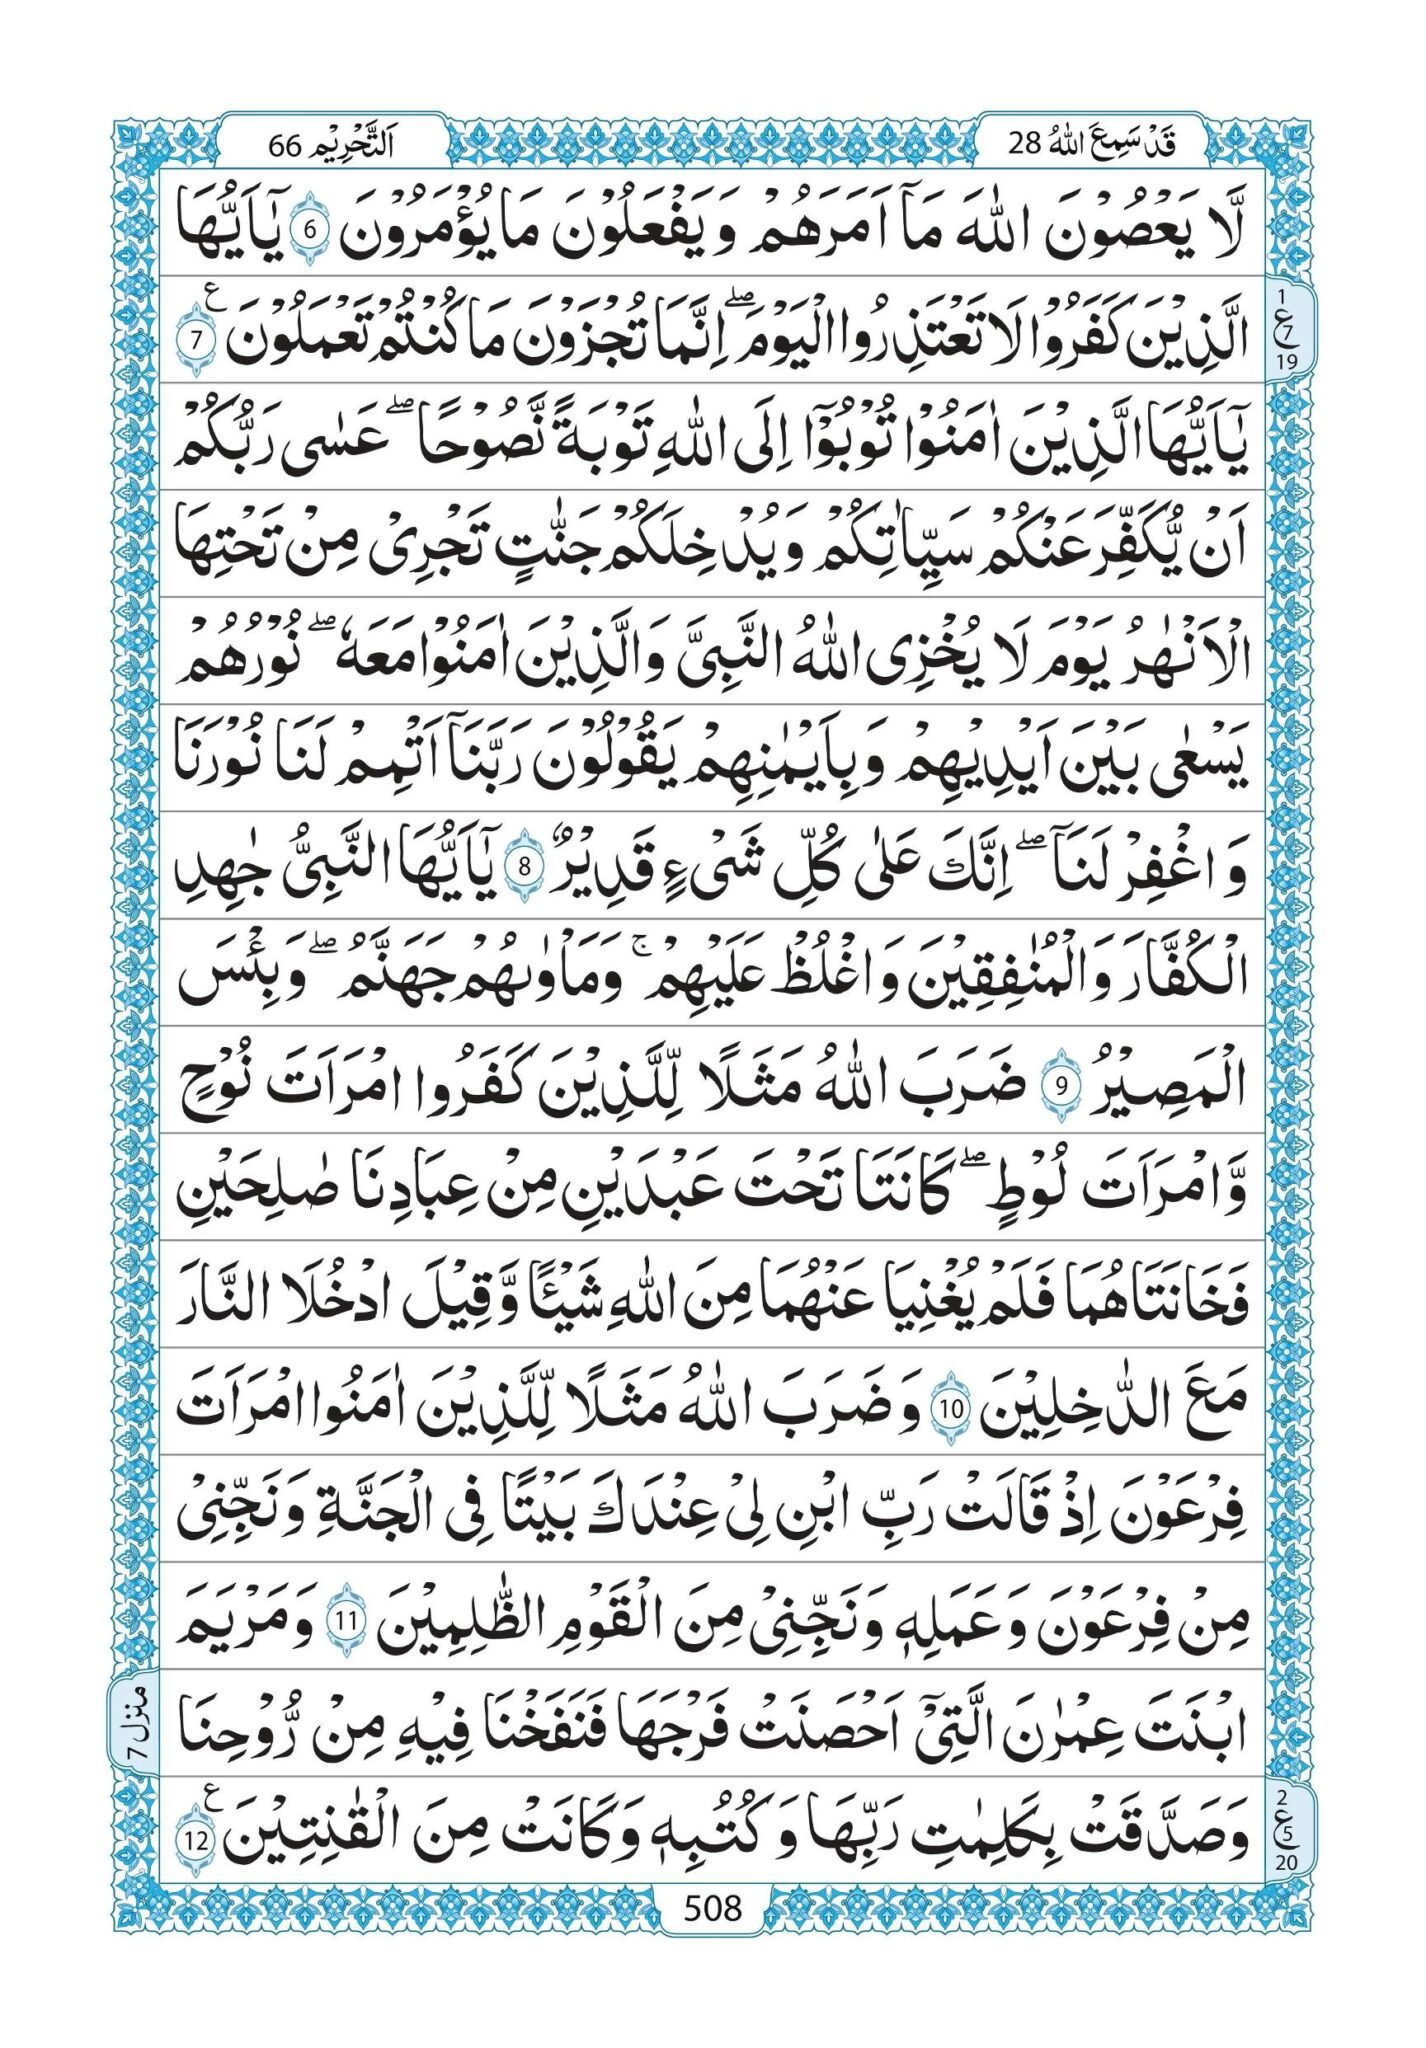 قَدْ سَمِعَ اللّٰهُ 28
اَلتَّحْرِيْم 66
لَّا يَعْصُوْنَ اللّٰهَ مَاۤ اَمَرَهُمْ وَيَفْعَلُوْنَ مَا يُؤْمَرُوْنَ 6 يٰۤاَيُّهَا
الَّذِيْنَ كَفَرُوْا لَا تَعْتَذِرُوا الْيَوْمَ ۖ اِنَّمَا تُجْزَوْنَ مَا كُنْتُمْ تَعْمَلُوْنَ ع 7
1 ع 7 19
يٰۤاَيُّهَا الَّذِيْنَ اٰمَنُوْا تُوْبُوْۤا اِلَى اللّٰهِ تَوْبَةً نَّصُوْحًا ۖ عَسٰى رَبُّكُمْ
اَنْ يُّكَفِّرَ عَنْكُمْ سَيِّاٰتِكُمْ وَيُدْخِلَكُمْ جَنّٰتٍ تَجْرِيْ مِنْ تَحْتِهَا
الْاَنْهٰرُ يَوْمَ لَا يُخْزِى اللّٰهُ النَّبِيَّ وَالَّذِيْنَ اٰمَنُوْا مَعَهٗ ۖ نُوْرُهُمْ
يَسْعٰى بَيْنَ اَيْدِيْهِمْ وَبِاَيْمٰنِهِمْ يَقُوْلُوْنَ رَبَّنَاۤ اَتْمِمْ لَنَا نُوْرَنَا
وَاغْفِرْ لَنَاۤ ۖ اِنَّكَ عَلٰى كُلِّ شَيْءٍ قَدِيْرٌ 8 يٰۤاَيُّهَا النَّبِيُّ جٰهِدِ
الْكُفَّارَ وَالْمُنٰفِقِيْنَ وَاغْلُظْ عَلَيْهِمْ ۚ وَمَاْوٰىهُمْ جَهَنَّمُ ۖ وَبِئْسَ
الْمَصِيْرُ 9 ضَرَبَ اللّٰهُ مَثَلًا لِّلَّذِيْنَ كَفَرُوا امْرَاَتَ نُوْحٍ
وَّامْرَاَتَ لُوْطٍ ۖ كَانَتَا تَحْتَ عَبْدَيْنِ مِنْ عِبَادِنَا صٰلِحَيْنِ
فَخَانَتَاهُمَا فَلَمْ يُغْنِيَا عَنْهُمَا مِنَ اللّٰهِ شَيْـًٔا وَّقِيْلَ ادْخُلَا النَّارَ
مَعَ الدّٰخِلِيْنَ 10 وَضَرَبَ اللّٰهُ مَثَلًا لِّلَّذِيْنَ اٰمَنُوا امْرَاَتَ
فِرْعَوْنَ اِذْ قَالَتْ رَبِّ ابْنِ لِيْ عِنْدَكَ بَيْتًا فِى الْجَنَّةِ وَنَجِّنِيْ
مِنْ فِرْعَوْنَ وَعَمَلِهٖ وَنَجِّنِيْ مِنَ الْقَوْمِ الظّٰلِمِيْنَ 11 وَمَرْيَمَ
ابْنَتَ عِمْرٰنَ الَّتِيْۤ اَحْصَنَتْ فَرْجَهَا فَنَفَخْنَا فِيْهِ مِنْ رُّوْحِنَا
منزل 7
وَصَدَّقَتْ بِكَلِمٰتِ رَبِّهَا وَكُتُبِهٖ وَكَانَتْ مِنَ الْقٰنِتِيْنَ ع 12
2 ع 5 20
508